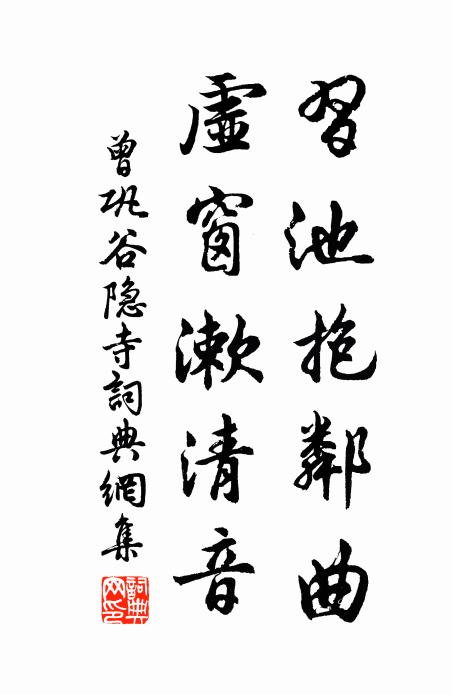 習池抱鄰曲
虛窗漱清音
曾巩谷隐寺詞典網集
詞典網印